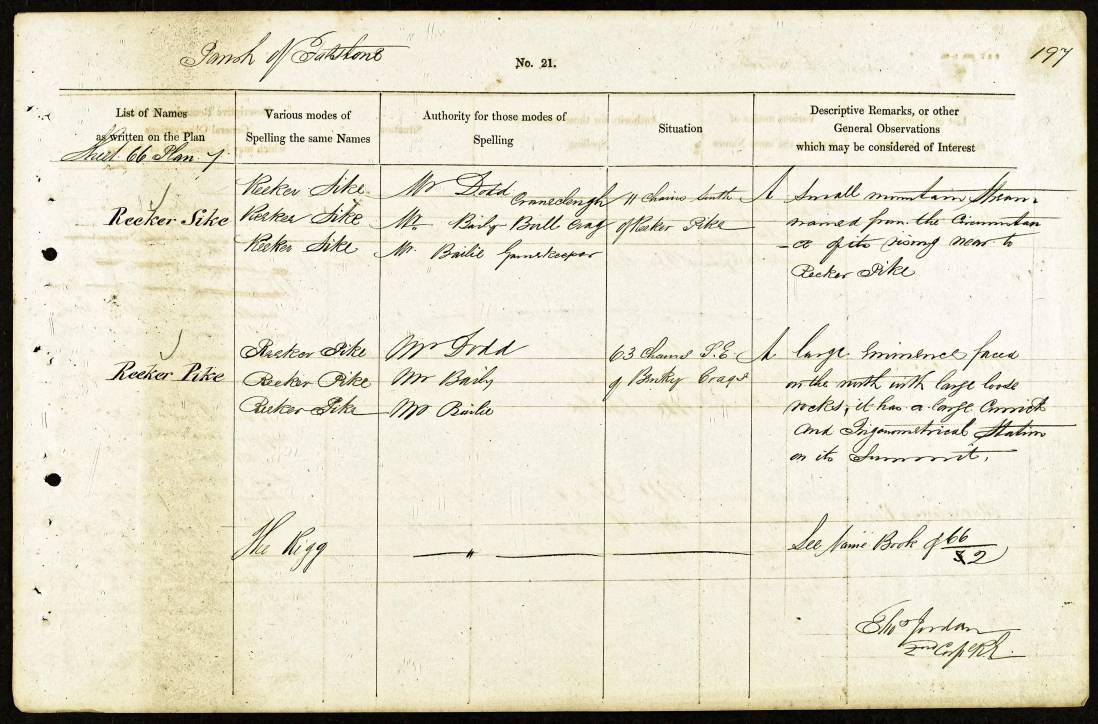 Parish of Falstone
No. 21.
197
List of Names
as written on the Plan
Various modes of
Spelling the same Names
Authority for those modes of
Spelling
Situation
Descriptive Remarks, or other
General Observations
which may be considered of Interest
Sheet 66 Plan 7
Reeker Sike
Reeker Sike
Reeker Sike
Reeker Sike
Mr Dodd Cranecleugh
Mr. Baily Bull Crag
Mr. Bailie Gamekeeper
11 Chains South
of Reeker Pike
A small mountain Stream
named from the Circumstan
-ce of its rising near to
Reeker Pike
Reeker Pike
Reeker Pike
Reeker Pike
Reeker Pike
Mr Dodd
Mr Baily
Mr Bailie
63 Chains S.E
of Crags
A large Eminence faced
on the north with large loose
rocks; it has a large
and Trigonometrical Station
on its Summit.
The Rigg
"
See Name Book of 66
2
Thos Jordan
2nd Corpl R.E.